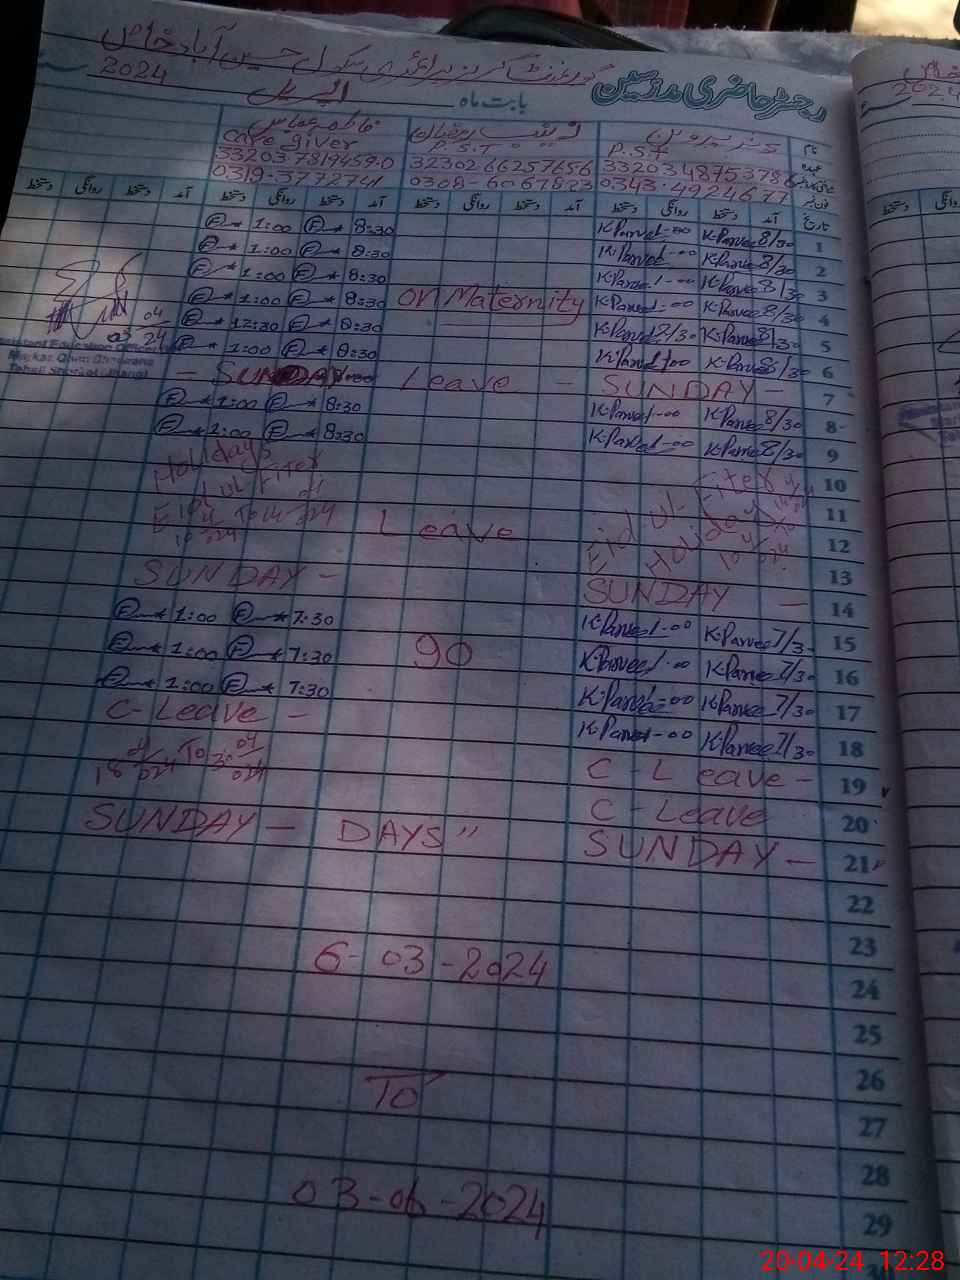 گورنمنٹ گرلز پرائمری سکول حسین آباد خاص
رجسٹر حاضری مدرسین
بابت ماہ اپریل 2024
نام کنیز پروین زینب رمضان فاطمہ عباس
عہدہ P.S.T P.S.T care giver
3320348753786 3230266257656 33203-7819459-0
فون نمبر 0343-4924677 0308-6067823 0319-3772741
تاریخ آمد دستخط روانگی دستخط آمد دستخط روانگی دستخط آمد دستخط روانگی دستخط آمد دستخط روانگی دستخط
1 8/30 K.Parvee 1-00 8:30 1:00
2 8/30 K.Parvee 1-00 8:30 1:00
3 8/30 K.Parvee 1-00 8:30 1:00
4 8/30 K.Parvee 1-00 on Maternity 8:30 1:00
5 8/30 K.Parvee 12/30 8:30 12:30
6 8/30 K.Parvee 1-00 8:30 1:00
7 SUNDAY - Leave - - SUNDAY
8 8/30 K.Parvee 1-00 8:30 1:00
9 8/30 K.Parvee 1-00 8:30 1:00
10 Eid ul-Fiter Holidays
11 Holiday Leave Eid ul-Fiter
12
13 SUNDAY -
14 SUNDAY -
15 7/30 K.Parvee 1-00 7:30 1:00
16 7/30 K.Parvee 1-00 90 7:30 1:00
17 7/30 K.Parvee 1-00 7:30 1:00
18 7/30 K.Parvee 1-00 C-Leave -
19 C-Leave - 18 4/024 To
20 C-Leave
21 SUNDAY - DAYS" SUNDAY -
22
23
24 6-03-2024
25
26
27 To
28
29 03-06-2024
20-04-24 12:28